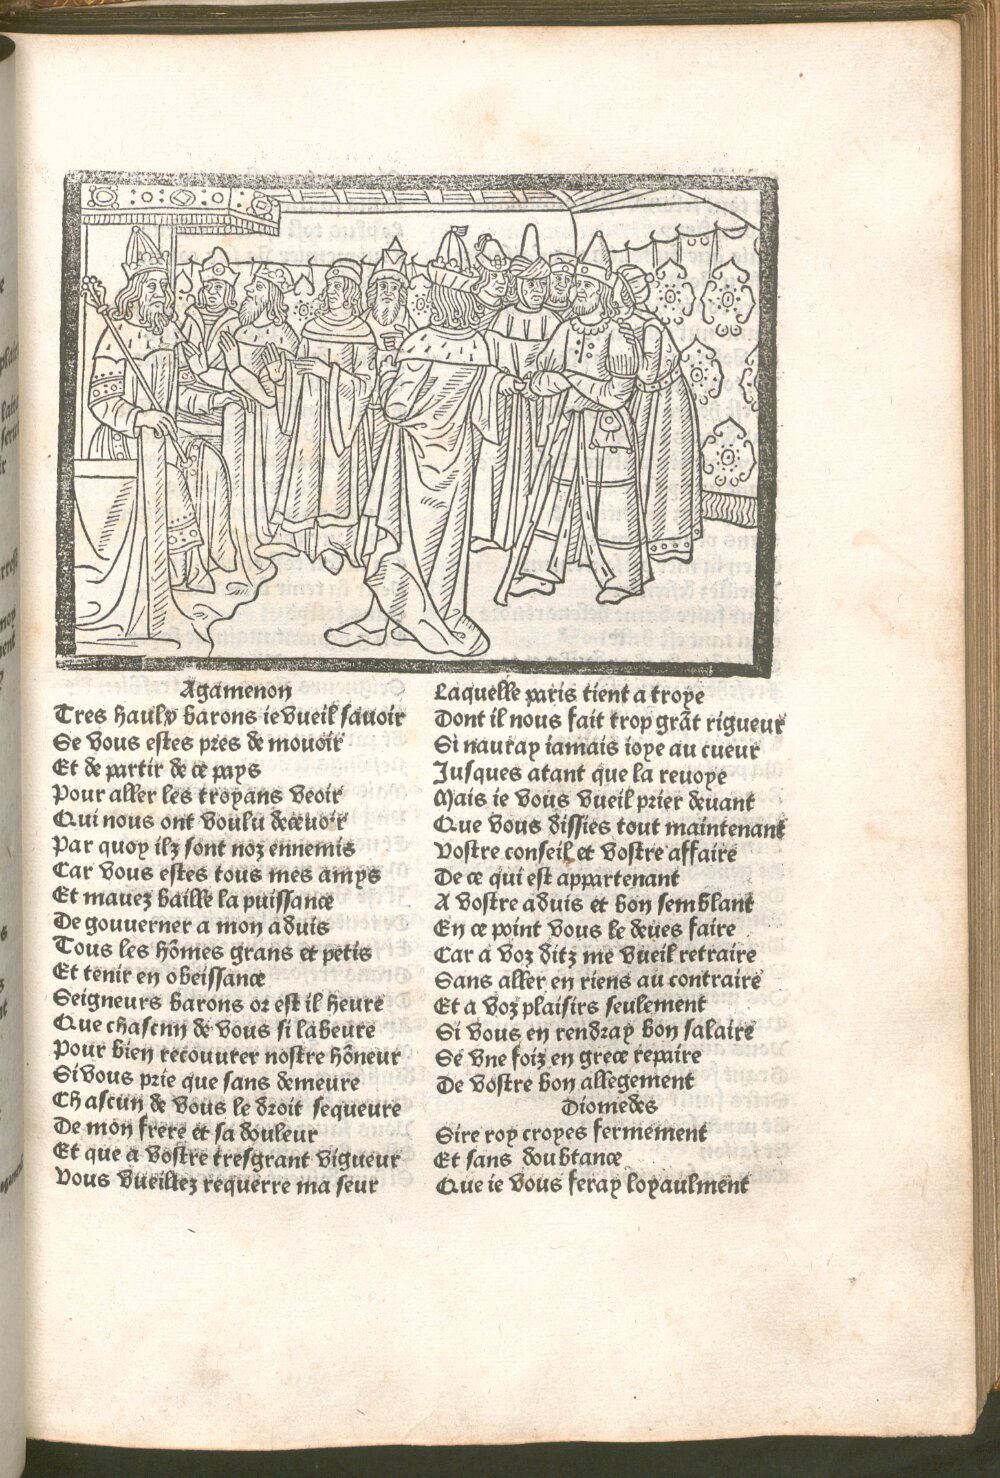 Agamenon
Tres haulx barons ie vueil sauoir
Se vous estes pres de mouoir
Et de partir de ce pays
Pour aller les troyans veoir
Qui nous ont voulu deceuoir
Par quoy ilz sont noz ennemis
Car vous estes tous mes amys
Et mauez baille la puissance
De gouuerner a mon aduis
Tous les hõmes grans et petis
Et tenir en obeissance
Seigneurs barons or est il heure
Que chascun de vous si labeure
Pour bien recouurer nostre hõneur
Si vous prie que sans demeure
Chascun de vous le droit sequeure
De mon frere et sa douleur
Et que a vostre tresgrant vigueur
Vous vueillez requerre ma seur
Laquelle paris tient a troye
Dont il nous fait trop grãt rigueur
Si nauray iamais ioye au cueur
Jusques atant que la reuoye
Mais ie vous vueil prier deuant
Que vous dissies tout maintenant
Vostre conseil et vostre affaire
De ce qui est appartenant
A vostre aduis et bon semblant
En ce point vous le deues faire
Car a voz ditz me vueil retraire
Sans aller en riens au contraire
Et a voz plaisirs seulement
Si vous en rendray bon salaire
Se vne foiz en grece repaire
De vostre bon allegement
Diomedes
Sire roy croyes fermement
Et sans doubtance
Que ie vous feray loyaulment